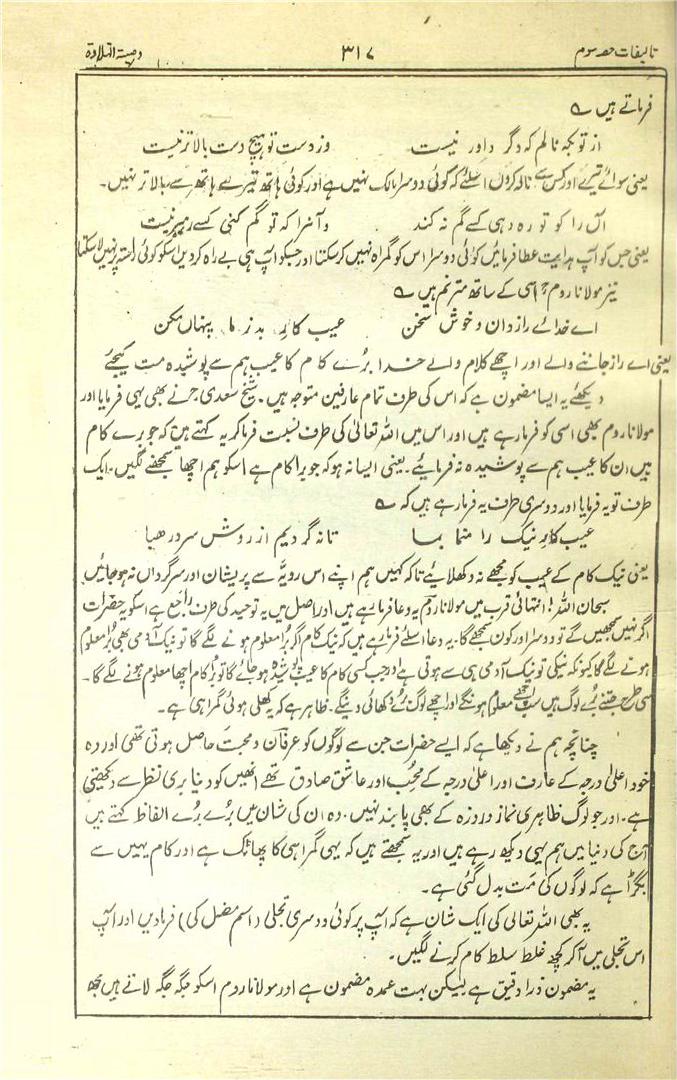 تالیفات حصہ سوم ۳۱۷ وصیۃ التلاوۃ
فرماتے ہیں ؎
از تو بکہ نالم کہ دگر داور نیست وز دست تو ہیچ دست بالاتر نیست
یعنی سوائے تیرے اور کس سے نالہ کروں اسلئے کہ کوئی دوسرا مالک نہیں ہے اور کوئی ہاتھ تیرے ہاتھ سے بالاتر نہیں۔
آں را کو تو رہ دہی کسے گم نہ کند وآنرا کہ تو گم کنی کسے رہبر نیست
یعنی جس کو آپ ہدایت عطا فرمائیں کوئی دوسرا اس کو گمراہ نہیں کر سکتا اور جسکو آپ ہی بے راہ کر دیں اسکو کوئی راستہ پر نہیں لا سکتا
نیز مولانا روم اسی کے ساتھ مترنم ہیں ؎
اے خدائے رازدان و خوش سخن عیب کار بد ز ما پنہاں مکن
یعنی اے راز جاننے والے اور اچھے کلام والے خدا بُرے کام کا عیب ہم سے پوشیدہ مت کیجئے
دیکھئے یہ ایسا مضمون ہے کہ اس کی طرف تمام عارفین متوجہ ہیں۔ شیخ سعدی نے بھی یہی فرمایا اور
مولانا روم بھی اسی کو فرما رہے ہیں اور اس میں اللہ تعالیٰ کی طرف نسبت فرما کر یہ کہتے ہیں کہ جو برے کام
ہیں ان کا عیب ہم سے پوشیدہ نہ فرمائیے۔ یعنی ایسا نہ ہو کہ جو برا کام ہے اسکو ہم اچھا سمجھنے لگیں۔ ایک
طرف تو یہ فرمایا اور دوسری طرف یہ فرما رہے ہیں کہ ؎
عیب کار نیک را منما بما تا نہ گردیم از روش سرد و ھبا
یعنی نیک کام کے عیب کو مجھے نہ دکھلایئے تاکہ کہیں ہم اپنے اس رویہ سے پریشان اور سرگرداں نہ ہو جائیں
سبحان اللہ! انتہائی قرب میں مولانا روم یہ دعا فرما رہے ہیں اور اصل میں یہ توحید کی طرف راجع ہے اسکو یہ حضرات
اگر نہیں سمجھیں گے تو دوسرا اور کون سمجھے گا۔ یہ دعا اسلئے فرما رہے ہیں کہ نیک کام اگر بُرا معلوم ہونے لگے گا تو نیک آدمی بھی بُرا معلوم
ہونے لگے گا کیونکہ نیکی تو نیک آدمی ہی سے ہوتی ہے اور جب کسی کام کا عیب پوشیدہ ہو جائے گا تو بُرا کام اچھا معلوم ہونے لگے گا۔
اسی طرح جتنے بُرے لوگ ہیں سب اچھے معلوم ہونگے اور اچھے لوگ بُرے دکھائی دینگے۔ ظاہر ہے کہ یہ کھلی ہوئی گمراہی ہے۔
چنانچہ ہم نے دیکھا ہے کہ ایسے حضرات جن سے لوگوں کو عرفان و محبت حاصل ہوتی تھی اور وہ
خود اعلیٰ درجہ کے عارف اور اعلیٰ درجہ کے محب اور عاشق صادق تھے انھیں کو دنیا بری نظر سے دیکھتی
ہے۔ اور جو لوگ ظاہری نماز و روزہ کے بھی پابند نہیں۔ وہ ان کی شان میں بُرے بُرے الفاظ کہتے ہیں
آج کی دنیا میں ہم یہی دیکھ رہے ہیں اور یہ سمجھتے ہیں کہ یہی گمراہی کا پھاٹک ہے اور کام یہیں سے
بگڑا ہے کہ لوگوں کی مَت بدل گئی ہے۔
یہ بھی اللہ تعالی کی ایک شان ہے کہ آپ پر کوئی دوسری تجلی (اسم مضل کی) فرما دیں اور آپ
اس تجلی میں آ کر کچھ غلط سلط کام کرنے لگیں۔
یہ مضمون ذرا دقیق ہے لیکن بہت عمدہ مضمون ہے اور مولانا روم اسکو جگہ جگہ لاتے ہیں مجھ